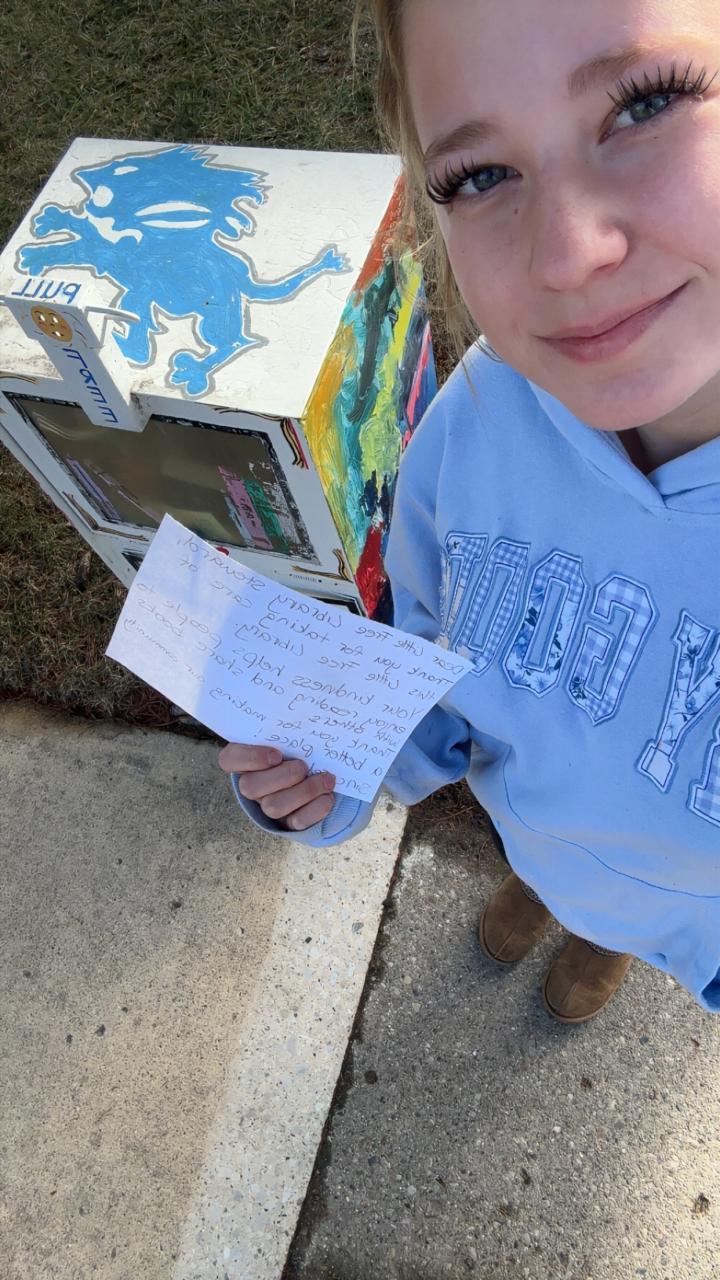 PULL
Dear Little Free Library Steward,
Thank you for taking care of
this Little Free Library
Your kindness helps people to
enjoy reading and share books
with others our community
Thank you for making
a better place!
GOOD